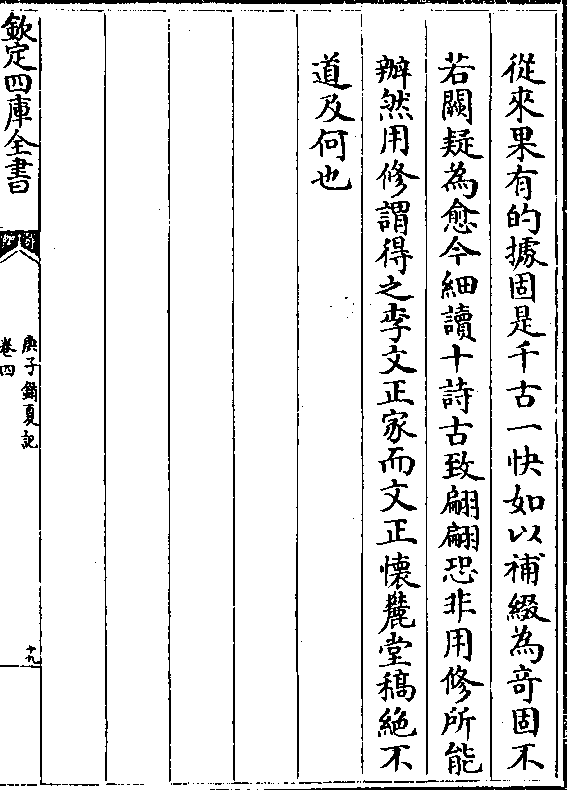 從來果有的據固是千古一快如以補綴為竒固不
若闕疑為愈今細讀十詩古致翩翩恐非用修所能
辦然用修謂得之李文正家而文正懷麓堂稿絶不
道及何也
欽定四庫全書
庚子銷夏記
卷四
十九